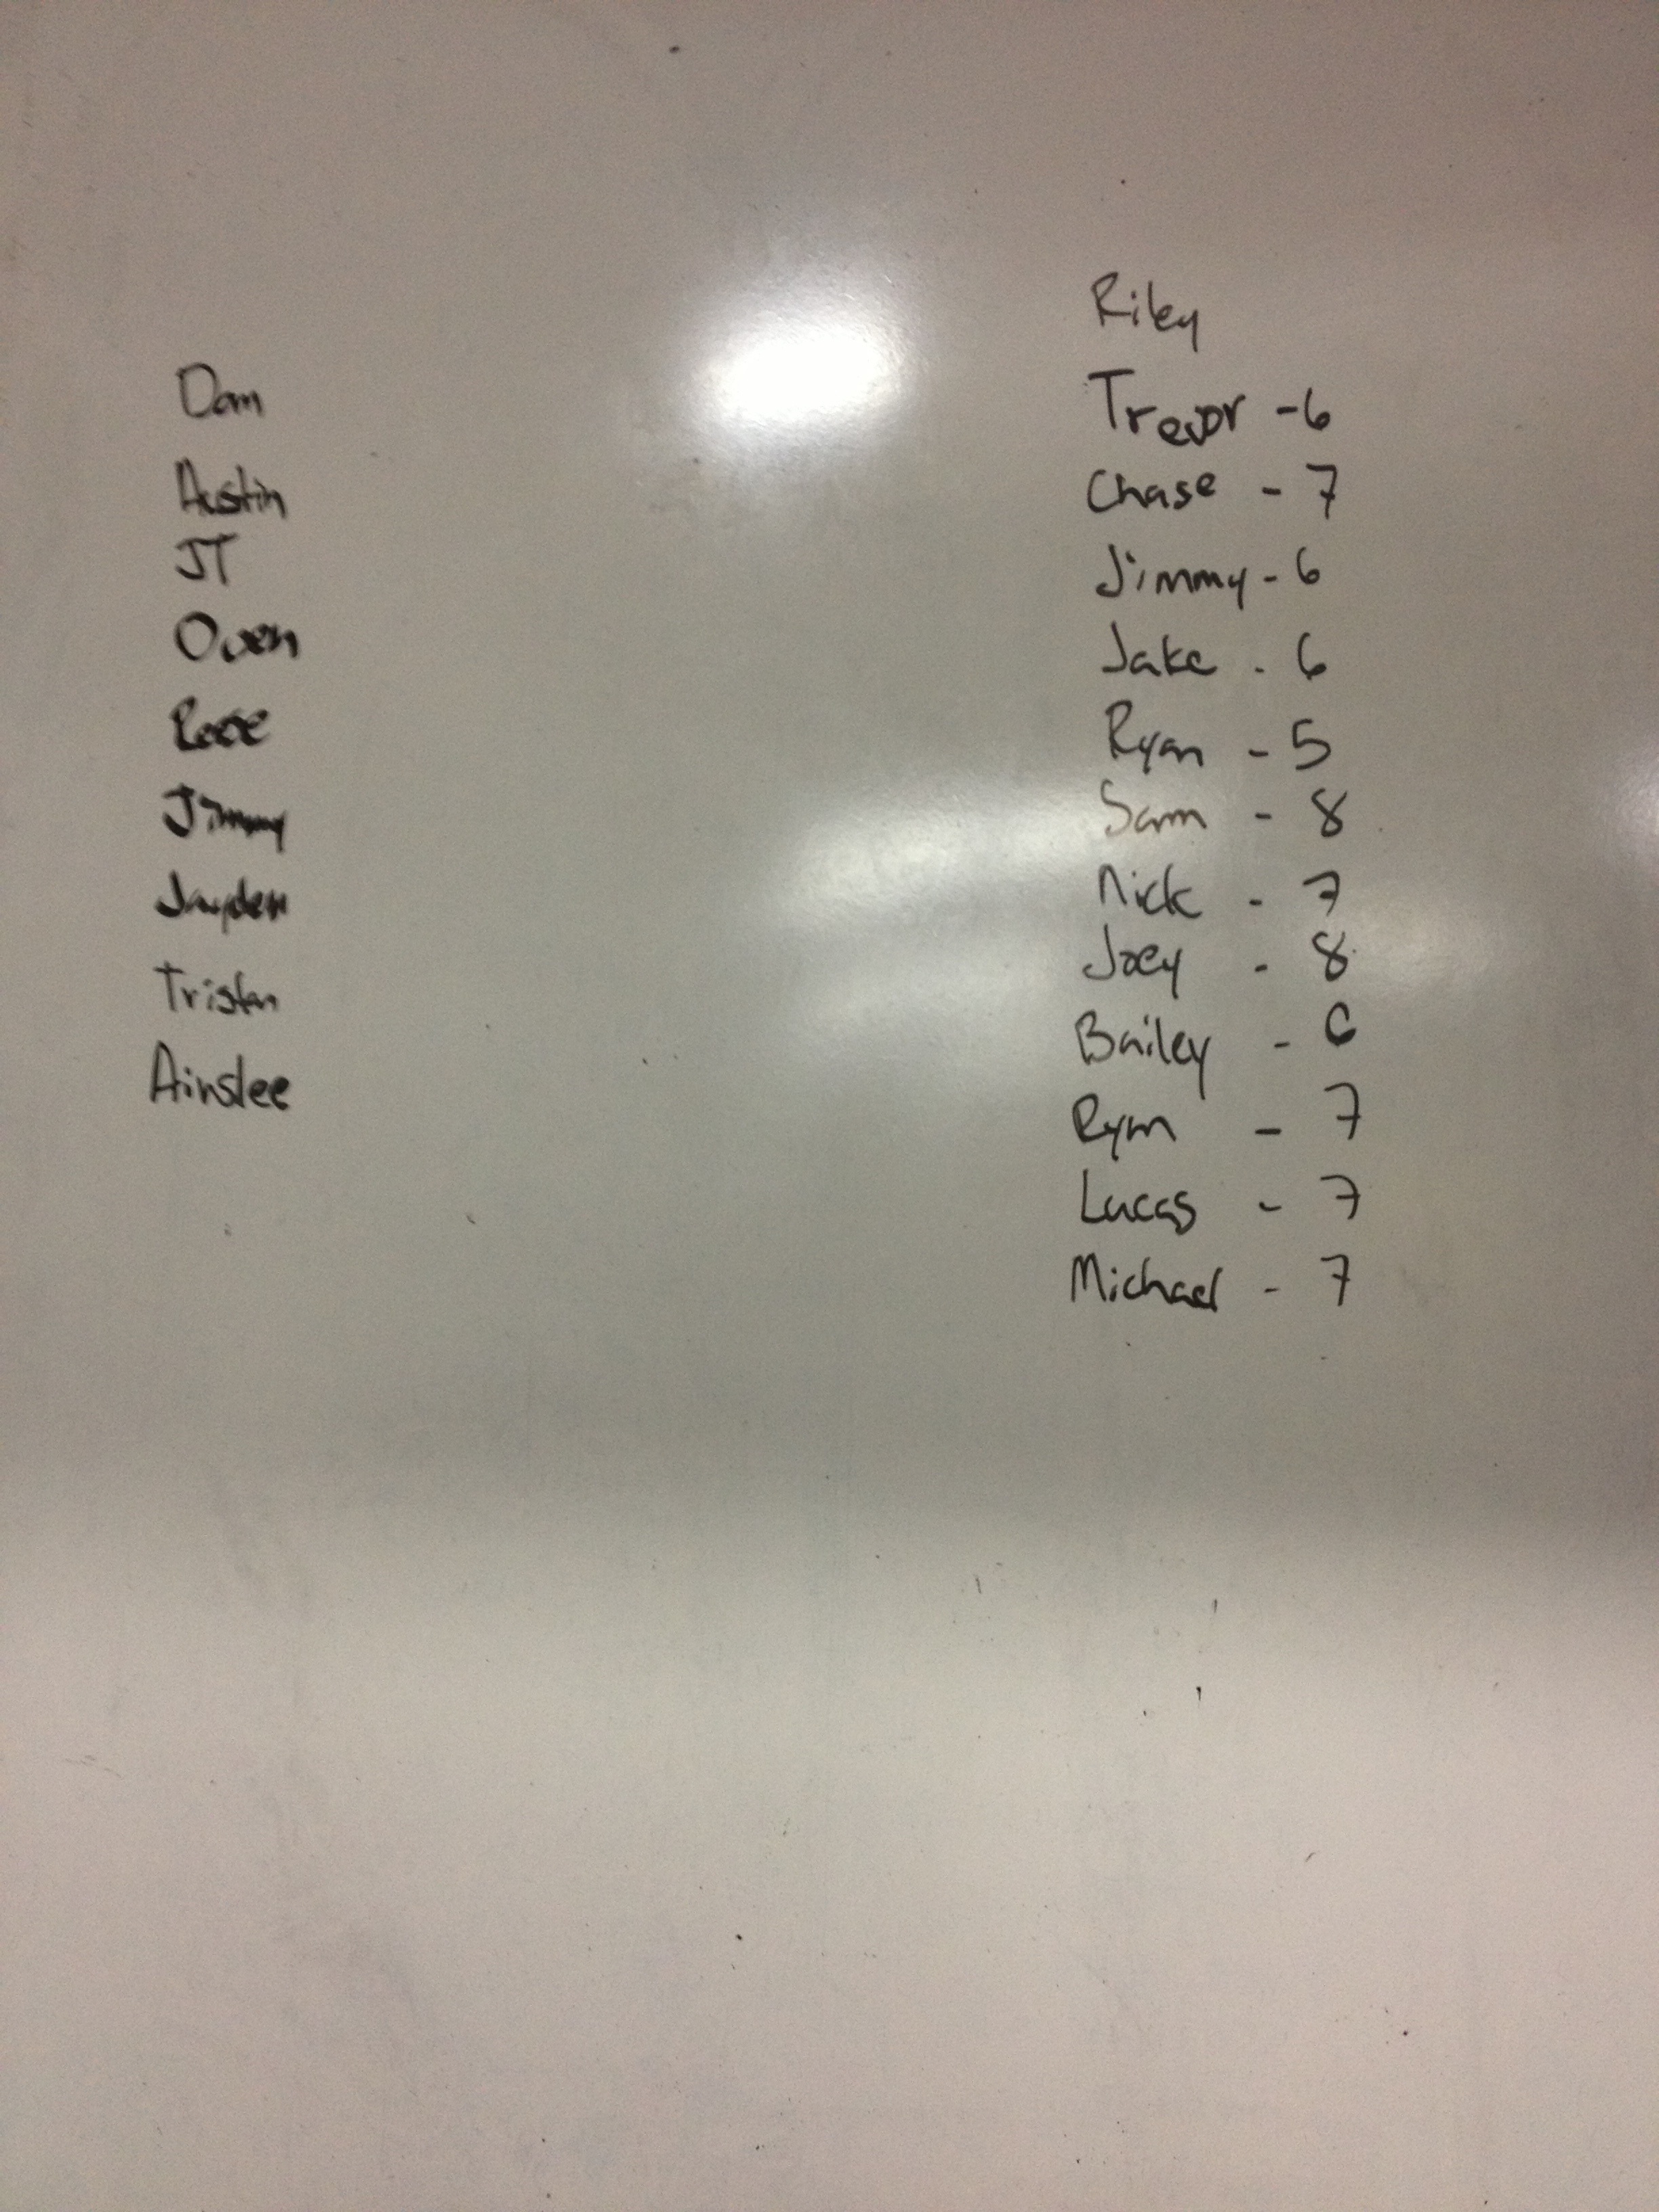 Dom
Austin
JT
Owen
Reese
Jimmy
Jayden
Tristan
Ainslee
Riley
Trevor - 6
Chase - 7
Jimmy - 6
Jake - 6
Ryan - 5
Sam - 8
Nick - 7
Joey - 8
Bailey - 6
Ryan - 7
Lucas - 7
Michael - 7